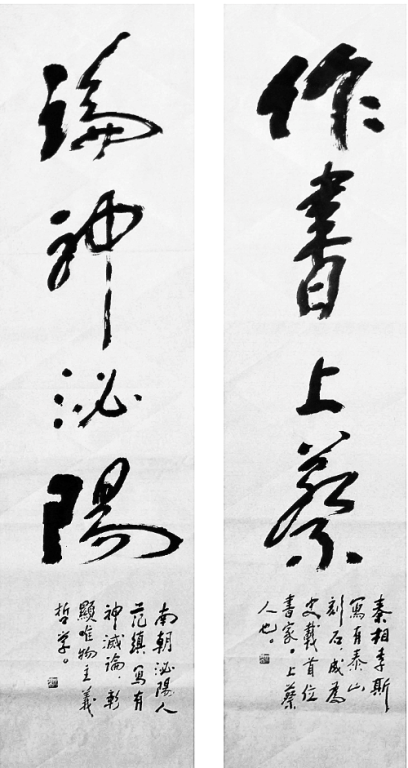 作書上蔡
秦相李斯
寫有泰山
刻石、成為
史載首位
書家。上蔡
人也。
論神泌陽
南朝泌陽人
范縝、寫有
神滅論、彰
顯唯物主義
哲学。